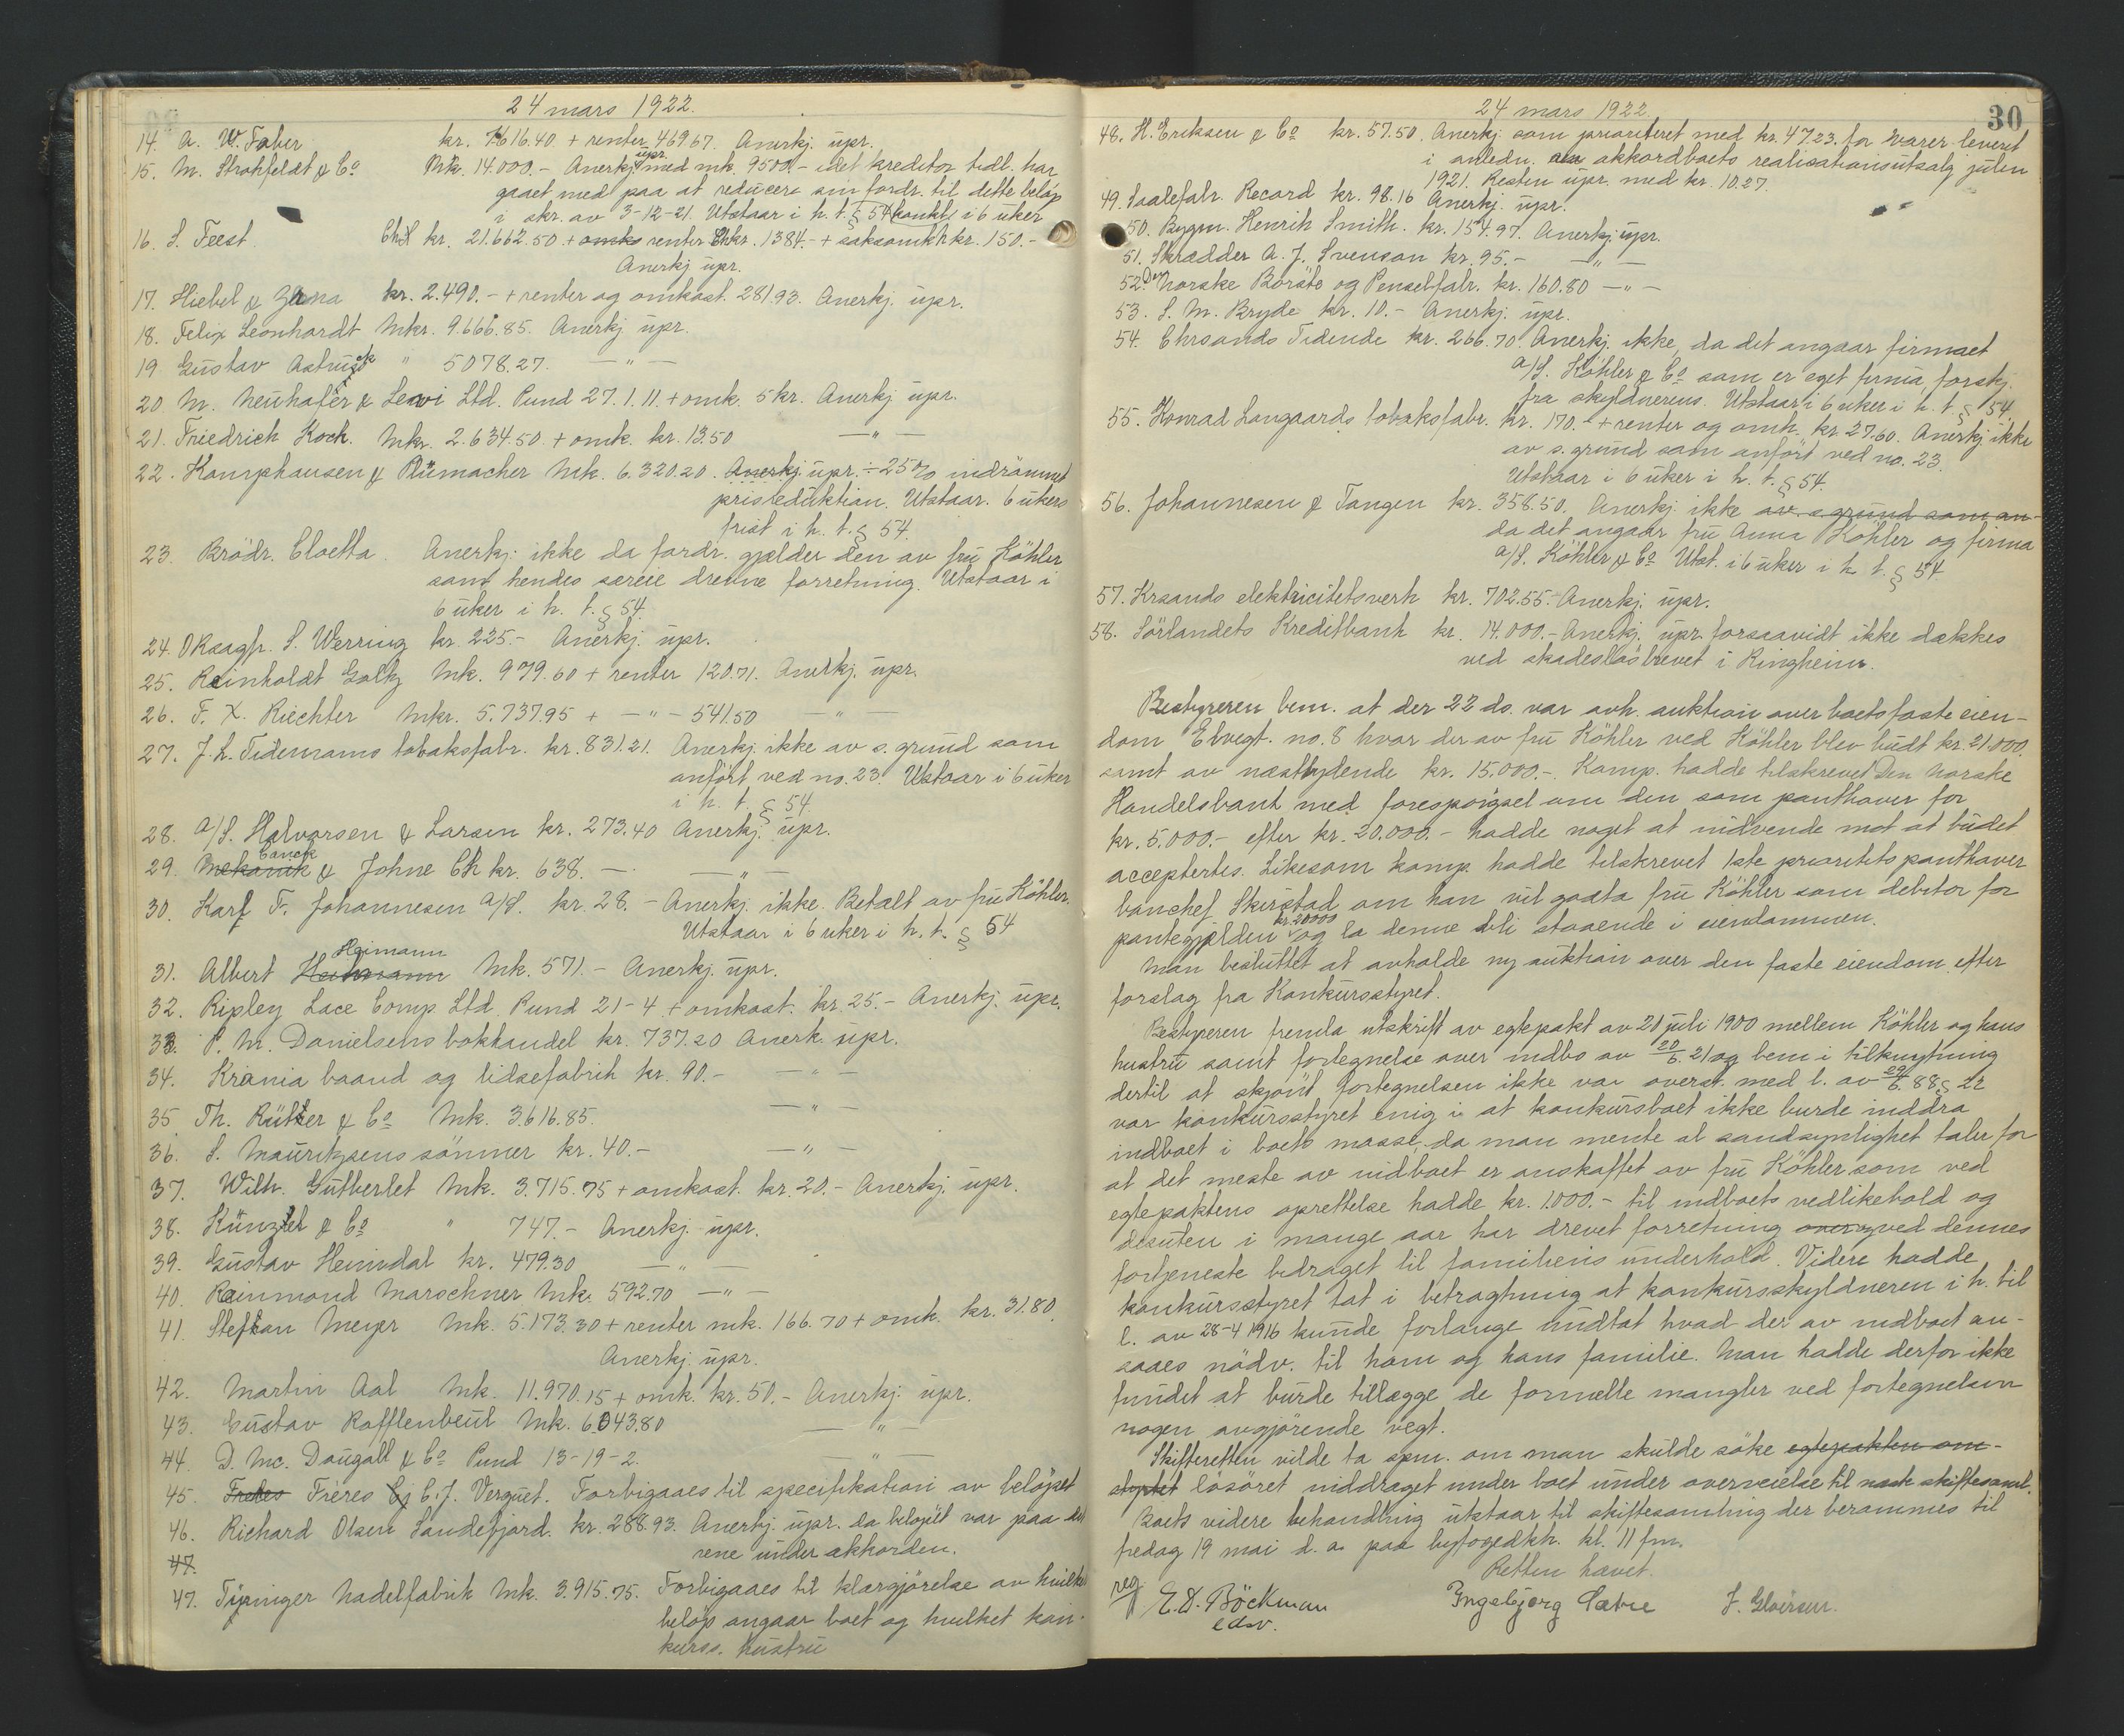 24 mars 1922.
14. A. W. Faber kr. 1616.40 + renter 469.67. Anerkj. upr.
15. M. Strohfeldt & Co Mk. 14.000.- Anerkj. upr. med mk. 9500.- idet kreditor tidl. har
gaaet med paa at reducere sin fordr. til dette beløp
i skr. av 3-12-21. Utstaar i h. t. § 54 konkl. i 6 uker
16. S. Feest. Ch kr. 21.662.50 + omk renter Chkr. 1384.- + saksomk. kr. 150.-
Anerkj. upr.
17. Hiebel & kr. 2.490.- + renter og omkost. 281.93. Anerkj. upr.
18. Felix Leonhardt Mkr. 9.666.85. Anerkj. upr.
19 Gustav " 5078.27. — " —
20 M. Neuhafer & Levi Ltd. Pund 27.1.11. + omk. 5 kr. Anerkj. upr.
21. Friedrich Koch. Mkr. 2.634.50 + omk. kr. 13.50 — " —
22. Kamphausen & Plümacher Mk. 6.320.20. Anerkj. upr. ÷ 25% indrömmet
prisreduktion. Utstaar. 6 ukers
frist i h. t. § 54.
23. Brödr. Cloetta. Anerkj. ikke da fordr. gjælder den av fru Köhler
som hendes særeie drevne forretning. Utstaar i
6 uker i h. t. § 54.
24. ORsagf. S. Werring kr. 225.- Anerkj. upr.
25. Reinholdt Golly Mk. 979.60 + renter 120.71. Anerkj. upr.
26. F. X. Riechter Mkr. 5.737.95 + — " — 541.50 — " —
27. J. L. Tidemanns tobaksfabr. kr. 831.21. Anerkj. ikke av s. grund som
anført ved no. 23. Utstaar i 6 uker
i h. t. § 54.
28. A/S. Halvorsen & Larsen kr. 273.40 Anerkj. upr.
29. Mekanik Canck & Johne Ch kr. 638.- — " —
30. Karl F. Johannesen A/S. kr. 28.- Anerkj. ikke. Betalt av fru Köhler.
Utstaar i 6 uker i h. t. § 54
31. Albert Heimann Mk. 571.- Anerkj. upr.
32. Ripley Lace Comp. Ltd. Pund 21-4 + omkost. kr. 25.- Anerkj. upr.
33. P. M. Danielsens bokhandel kr. 737.20 Anerk. upr.
34. Krania baand og lidsefabrik kr. 90.- — " —
35 Th. Rütter & Co Mk. 3.616.85. — " —
36. S. Mauritzens sönner kr. 40.- — " —
37. Wilh. Gutberlet Mk. 3.715.75 + omkost. kr. 20.- Anerkj. upr.
38. Künzel & Co " 747.- Anerkj. upr.
39. Gustav Heimdal kr. 479.30 — " —
40. Reinmond Marschner Mk. 592.70 — " —
41. Steffan Meyer Mk. 5.173.30 + renter mk. 166.70 + omk. kr. 31.80.
Anerkj. upr.
42. Martin Aal Mk. 11.970.15 + omk. kr. 50.- Anerkj. upr.
43. Gustav Rafflenbeul Mk. 6043.80 — " —
44. D. Mc. Dougall & Co Pund 13-19-2. — " —
45. Fréres C. J. Verguet. Forbigaaes til specifikation av beløpet
46. Richard Olsen Sandefjord. kr. 288.93. Anerkj. upr. da beløpet var paa det
rene under akkorden.
47.
47. Tyringer Nadelfabrik Mk. 3.915.75. Forbigaaes til klargjörelse av hvilket
belöp angaar boet og hvilket kon-
kurss. hustru
24 mars 1922.
30
48. H. Eriksen & Co kr. 57.50. Anerkj. som prioriteret med kr. 47.23. for varer leveret
i anledn. av akkordboets realisationsutsalg julen
1921. Resten upr. med kr. 10.27.
49. Saalefabr. Record kr. 98.16 Anerkj. upr.
50. Bygm. Henrik Smith. kr. 154.97. Anerkj. upr.
51. Skrædder A. J. Svenson kr. 95.- — " —
52. Den Norske Börste og Penselfabr. kr. 160.80 — " —
53. S. M. Bryde kr. 10.- Anerkj. upr.
54. Chrsands Tidende kr. 266.70. Anerkj. ikke, da det angaar firmaet
A/S. Köhler & Co som er eget firma, forskj.
fra skyldnerens. Utstaar i 6 uker i h. t. § 54.
55. Konrad Langaards tobaksfabr. kr. 170.- + renter og omk. kr 27.60. Anerkj. ikke
av s. grund som anfört ved no. 23.
Utstaar i 6 uker i h. t. § 54.
56. Johannesen & Tangen kr. 358.50. Anerkj. ikke av s. grund som an-
da det angaar fru Anna Köhler og firma
A/S. Köhler & Co. Utst. i 6 uker i h. t. § 54.
57. Krsands elektricitetsverk kr. 702.55.- Anerkj. upr.
58. Sörlandets Kreditbank kr. 14.000.- Anerkj. upr. forsaavidt ikke dækkes
ved skadeslösbrevet i Ringheim.
Bestyreren bem. at der 22 ds. var avh. auktion over boets faste eien-
dom Elvegt. no. 8 hvor der av fru Köhler ved Köhler blev budt kr. 21.000.
samt av næstbydende kr. 15.000.-. Komp. hadde tilskrevet Den Norske
Handelsbank med forespörgsel om den som panthaver for
kr. 5.000.- efter kr. 20.000.- hadde noget at indvende mot at budet
acceptertes. Likesom komp. hadde tilskrevet 1ste prioritets panthaver
banchef Skirstad om han vil godta fru Köhler som debitor for
pantegjælden kr. 20000 og la denne bli staaende i eiendommen.
Man besluttet at avholde ny auktion over den faste eiendom efter
forslag fra Konkursstyret.
Bestyreren fremla utskrift av egtepakt av 21 juli 1900 mellem Köhler og hans
hustru samt fortegnelse over indbo av 20/6. 21 og bem. i tilknytning
dertil at skjönt fortegnelsen ikke var overst. med l. av 29/6. 88 § 22
var konkursstyret enig i at konkursboet ikke burde inddra
indboet i boets masse, da man mente at sandsynlighet taler for
at det meste av indboet er anskaffet av fru Köhler som ved
egtepaktens oprettelse hadde kr. 1.000.- til indboets vedlikehold og
desuten i mange aar har drevet forretning og ved dennes
fortjeneste bidraget til familiens underhold. Videre hadde
konkursstyret tat i betragtning at konkursskyldneren i h. til
l. av 28-4 1916 kunde forlange undtat hvad der av indboet an-
saaes nödv. til ham og hans familie. Man hadde derfor ikke
fundet at burde tillægge de formelle mangler ved fortegnelsen
nogen avgjörende vegt.
Skifteretten vilde ta spm. om man skulde söke egtepakten om-
styrtet lösöret inddraget under boet under overveielse til næste skiftesaml.
Boets videre behandling utstaar til skiftesamling der berammes til
fredag 19 mai d. a. paa byfogedkh. kl. 11 fm.
Retten hævet.
reg.
E. D. Böckman
edsv.
Ingebjorg Sæbre